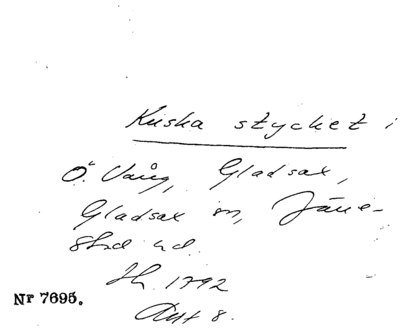 Kuska stycket i
Ö. Vång, Gladsax,
Gladsax sn, Järre-
stad hd.
Sk. 1792
Akt 8.
Nr 7695.